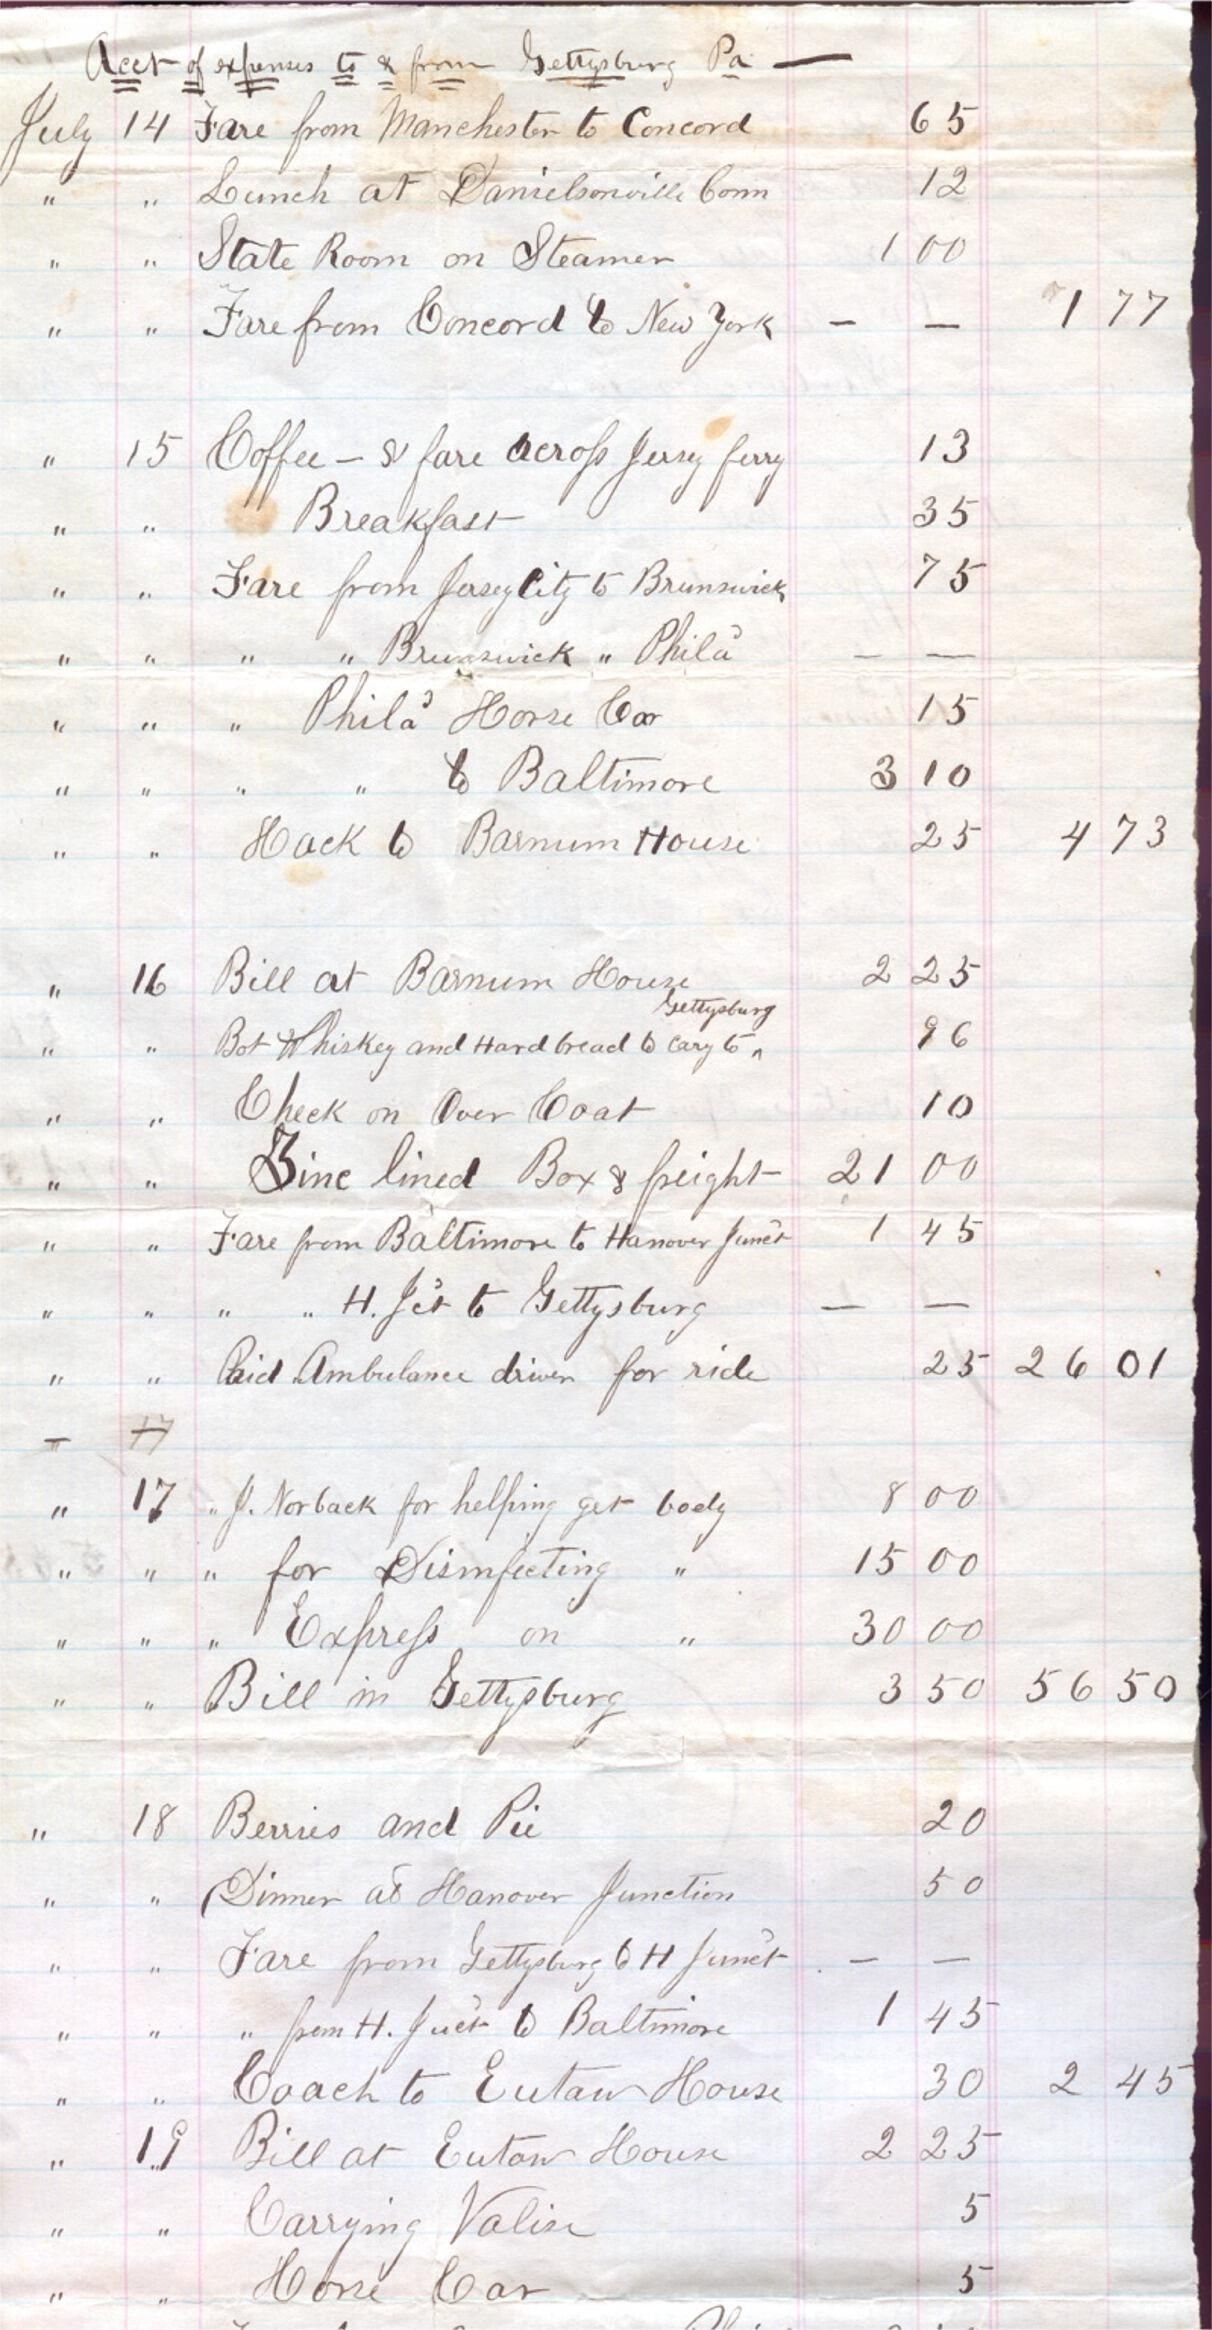 Acct of expenses to & from Gettysburg Pa —
July 14 Fare from Manchester to Concord 65
" " Lunch at Danielsonville Conn 12
" " State Room on Steamer 1 00
" " Fare from Concord to New York — — 1 77
" 15 Coffee — & fare across Jersey ferry 13
" " Breakfast 35
" " Fare from Jersey City to Brunswick 75
" " " " Brunswick " Phila — —
" " " Phila Horse Car 15
" " " " to Baltimore 3 10
" " Hack to Barnum House 25 4 73
" 16 Bill at Barnum House 2 25
Gettysburg
" " Bot Whiskey and Hard bread to cary to " 96
" " Check on Over Coat 10
" " Zinc lined Box & freight 21 00
" " Fare from Baltimore to Hanover Junct 1 45
" " " " H. Jct to Gettysburg — —
" " Paid Ambulance driver for ride 25 26 01
" 17
" 17 " J. Norback for helping get body 8 00
" " " for Disinfecting " 15 00
" " " Express on " 30 00
" " Bill in Gettysburg 3 50 56 50
" 18 Berries and Pie 20
" " Dinner at Hanover Junction 50
" " Fare from Gettysburg to H Junct — —
" " " from H. Juct to Baltimore 1 45
" " Coach to Eutaw House 30 2 45
" 19 Bill at Eutaw House 2 25
" " Carrying Valise 5
" " Horse Car 5